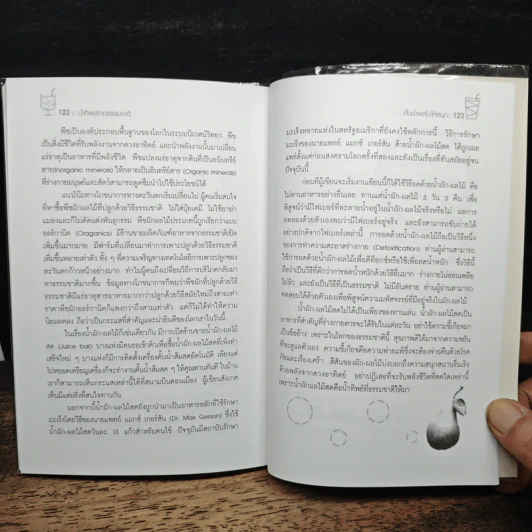 122 : น้ำทิพย์จากธรรมชาติ
พืชเป็นองค์ประกอบพื้นฐานของโลกในระบบนิเวศน์วิทยา พืช
เป็นสิ่งมีชีวิตที่รับพลังงานจากดวงอาทิตย์ และนำพลังงานนั้นมาเปลี่ยน
แร่ธาตุเป็นอาหารที่มีพลังชีวิต พืชแปลงแร่ธาตุจากดินที่เป็นอนินทรีย์
สาร(Inorganic minerals) ให้กลายเป็นอินทรีย์สาร (Organic minerals)
ที่ร่างกายมนุษย์และสัตว์สามารถดูดซึมนำไปใช้ประโยชน์ได้
แนวโน้มทางโภชนาการทางตะวันตกเริ่มเปลี่ยนไป ผู้คนเริ่มสนใจ
หาซื้อพืชผักผลไม้ที่ปลูกด้วยวิธีธรรมชาติ ไม่ใส่ปุ๋ยเคมี ไม่ใช้ยาฆ่า
แมลงและก็ไม่ดัดแต่งพันธุกรรม พืชผักผลไม้ประเภทนี้ถูกเรียกว่าแบบ
ออร์กานิค (Oraganics) มีร้านขายผลิตภัณฑ์อาหารจากธรรมชาติเปิด
เพิ่มขึ้นมากมาย มีฟาร์มที่เปลี่ยนมาทำการเพาะปลูกด้วยวิธีธรรมชาติ
เพิ่มขึ้นหลายเท่าตัว ทั้ง ๆ ที่ความเจริญทางเทคโนโลยีการเพาะปลูกของ
ตะวันตกก้าวหน้าอย่างมาก ทำไมผู้คนถึงเปลี่ยนวิถีการบริโภคกลับมา
หาธรรมชาติมากขึ้น ข้อมูลทางโภชนาการก็พบว่าพืชผักที่ปลูกด้วยวิธี
ธรรมชาติมีแร่ธาตุสารอาหารมากกว่าปลูกด้วยวิธีสมัยใหม่ถึงสามเท่า
ราคาพืชผักออร์กานิคก็แพงกว่าถึงสามเท่าตัว แต่ก็ไม่ได้ทำให้ความ
นิยมลดลง ถือว่าเป็นกระแสที่สำคัญและน่ายินดีของโลกเราในวันนี้
ในเรื่องน้ำผัก-ผลไม้ก็เช่นเดียวกัน มีการเปิดร้านขายน้ำผัก-ผลไม้
สด (Juice bar) บางแห่งมีคนรอเข้าคิวเพื่อซื้อน้ำผัก-ผลไม้สดที่เพิ่งทำ
เสร็จใหม่ ๆ บางแห่งก็มีการติดตั้งเครื่องคั้นน้ำส้มสดอัตโนมัติ เพียงแค่
ไปหยอดเหรียญเครื่องก็จะทำงานคั้นน้ำส้มสด ๆ ให้คุณทานทันที ในบ้าน
เราก็สามารถเห็นกระแสเหล่านี้ได้ที่สนามบินดอนเมือง ผู้เขียนสังเกต
เห็นมีแต่ฝรั่งที่สนใจทานกัน
นอกจากนี้น้ำผัก-ผลไม้สดยังถูกนำมาเป็นอาหารหลักที่ใช้รักษา
มะเร็งโดยวิธีของนายแพทย์ แมกซ์ เกอร์สัน (Dr. Max Gerson) ซึ่งใช้
น้ำผัก-ผลไม้สดวันละ 13 แก้วสำหรับคนไข้ ปัจจุบันมีสถาบันรักษา
คั้นน้ำผลไม้ให้สนุก : 123
มะเร็งหลายแห่งในสหรัฐอเมริกาที่ยังคงใช้หลักการนี้ วิธีการรักษา
มะเร็งของนายแพทย์ แมกซ์ เกอร์สัน ด้วยน้ำผัก-ผลไม้สด ได้ถูกเผย
แพร่ตั้งแต่ก่อนสงครามโลกครั้งที่สองและยังเป็นเรื่องที่ทันสมัยอยู่จน
ปัจจุบันนี้
ก่อนที่ผู้เขียนจะเริ่มงานเขียนนี้ก็ได้ใช้วิธีอดด้วยน้ำผัก-ผลไม้ คือ
ไม่ทานอาหารอย่างอื่นเลย ทานแต่น้ำผัก-ผลไม้ 3 วัน 3 คืน เพื่อ
พิสูจน์ว่ามีไฟเบอร์ที่ละลายน้ำอยู่ในน้ำผัก-ผลไม้จริงหรือไม่ ผลการ
ทดลองด้วยตัวเองพบว่ามีไฟเบอร์อยู่จริง และยังสามารถขับถ่ายได้
อย่างปกติจากไฟเบอร์เหล่านี้ การอดด้วยน้ำผัก-ผลไม้ถือเป็นวิธีหนึ่ง
ของการทำความสะอาดร่างกาย (Detoxification) ท่านผู้อ่านสามารถ
ใช้การอดด้วยน้ำผัก-ผลไม้เพื่อดีท็อกซ์หรือใช้เพื่อลดน้ำหนัก ซึ่งวิธีนี้
ถือว่าเป็นวิธีที่ดีกว่าการลดน้ำหนักด้วยวิธีอื่นมาก ร่างกายไม่อ่อนเพลีย
ไม่หิว และยังเป็นวิธีที่เป็นธรรมชาติ ไม่มีอันตราย ท่านผู้อ่านสามารถ
ทดสอบได้ด้วยตัวเองเพื่อพิสูจน์ความมหัศจรรย์ที่มีอยู่จริงในน้ำผัก-ผลไม้
น้ำผัก-ผลไม้สดไม่ได้เป็นเพียงของทานเล่น น้ำผัก-ผลไม้สดเป็น
อาหารที่สำคัญที่ร่างกายควรจะได้รับในแต่ละวัน อย่าใช้ความขี้เกียจมา
เป็นข้ออ้าง เพราะในโลกของธรรมชาตินี้ สุขภาพดีได้มาจากความขยัน
ที่จะดูแลตัวเอง ความขี้เกียจคือความพ่ายแพ้ซึ่งจะต้องจ่ายคืนด้วยโรค
ภัยและเรื่องเศร้า สีสันของน้ำผัก-ผลไม้บ่งบอกถึงความสนุกสนานรื่นเริง
ด้วยพลังจากดวงอาทิตย์ อย่าปฏิเสธที่จะรับพลังชีวิตที่สดใสเหล่านี้
เพราะน้ำผัก-ผลไม้สดคือน้ำทิพย์ที่ธรรมชาติให้มา